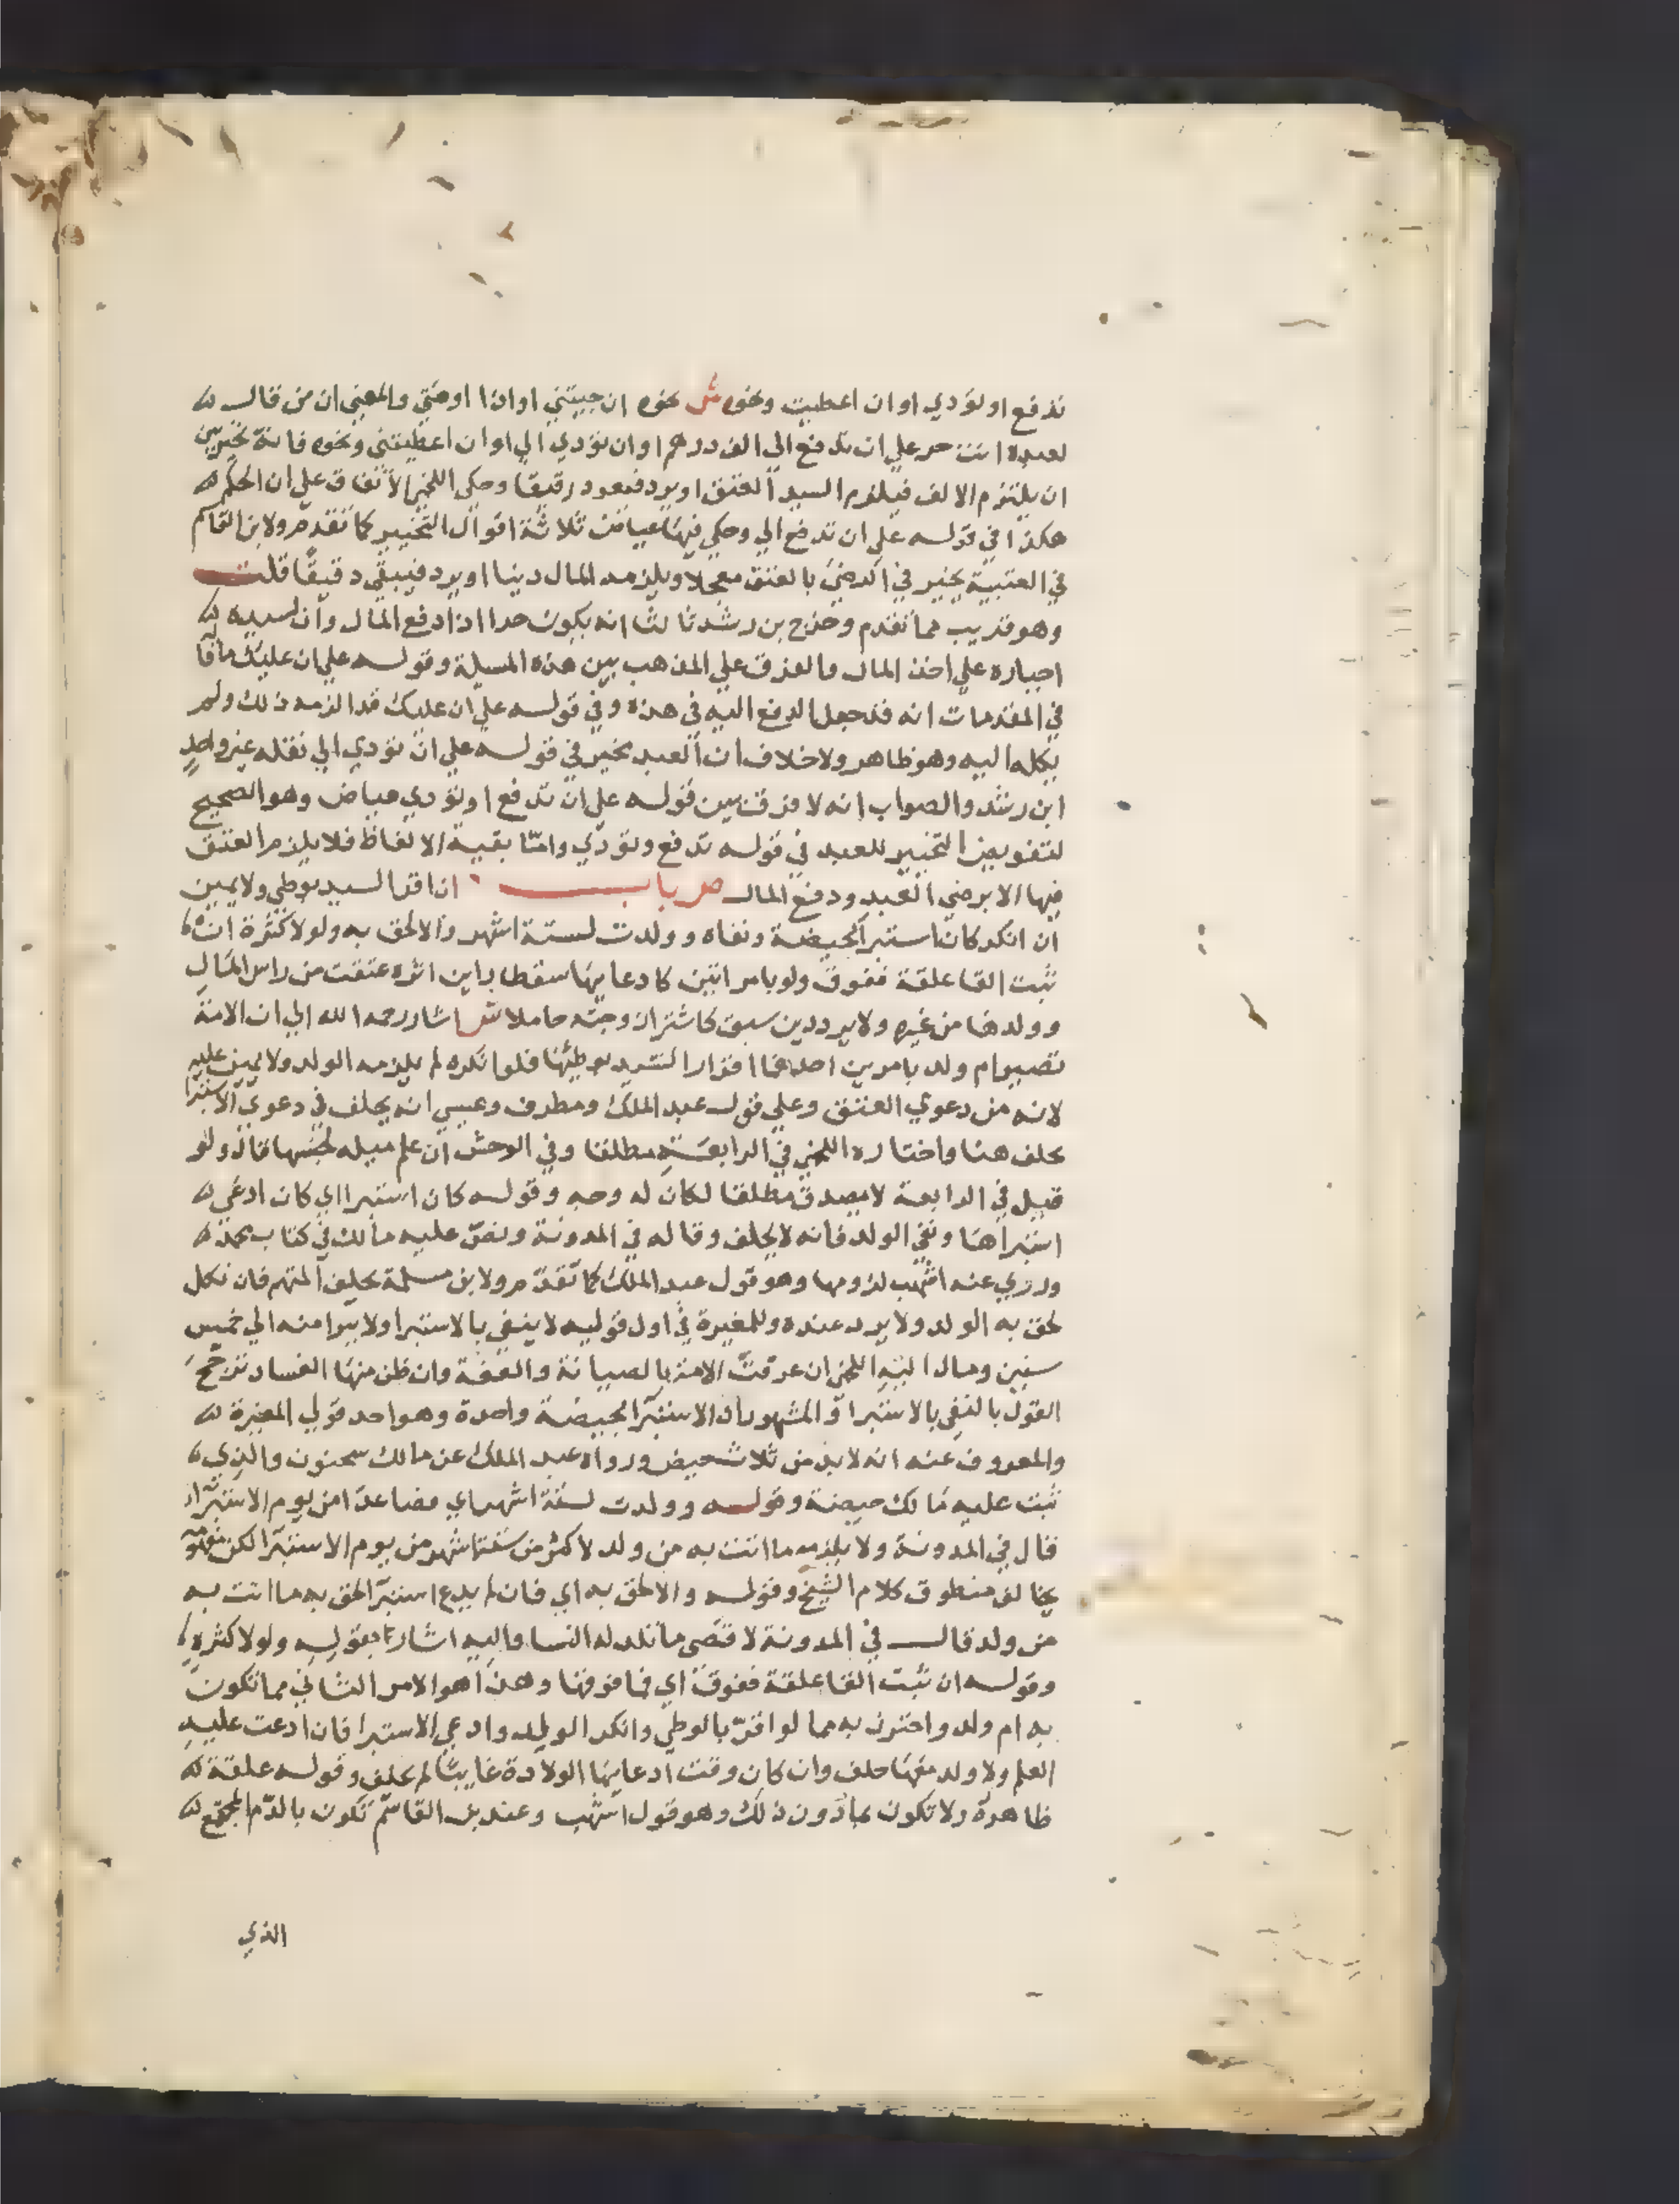 تدفع او تؤدي او ان اعطيت ونحوه ش نحوه ان جيتني او اذا اوصيتي والمعني ان من قال
لعبده انت حر علي ان تدفع الي الف درهم او ان تؤدي الي او ان اعطيتني ونحوه فانه يخير بين
ان يلتزم الالف فيلزم السيد العتق او يرد فيعود رقيقا وحكي اللخمي الاتفاق علي ان الحكم
هكذا في قوله علي ان تدفع الي وحكي فيها عياض ثلاثة اقوال التخيير كما تقدم ولابن القاسم
في العتبية يخير في الرضي بالعتق معجلا ويلزمه المال دينا او يرد فيبقي رقيقا قلت
وهو قريب مما تقدم وخرج بن رشد ثالثا انه يكون حرا اذا دفع المال وان لسيده
اجباره علي اخذ المال والفرق علي المذهب بين هذه المسيلة وقوله علي ان عليك ما قا
في المقدمات انه قد جعل الدفع اليه في هذه وفي قوله علي ان عليك قد الزمه ذلك ولم
يكله اليه وهو ظاهر ولا خلاف ان العبد مخير في قوله علي ان تؤدي الي نقله غير واحد
ابن رشد والصواب انه لا فرق بين قوله علي ان تدفع او تؤدي عياض وهو الصحيح
لتفويض التخيير للعبد في قوله تدفع وتؤدي وامّا بقية الالفاظ فلا يلزم العتق
فيها الا برضي العبد ودفع المال ص باب ان اقر السيد بوطي ولا يمين
ان انكر كان استبرا بحيضة ونفاه وولدت لستة اشهر والا لحق به ولو لاكثره ان
ثبت القا علقة ففوق ولو بامراتين كادعايها سقطا راين اثره عتقت من راس المال
وولدها من غيره ولا يرد دين سبق كاشترا زوجته حاملا ش اشار رحمه الله الي ان الامة
تصير ام ولد بامرين احدهما اقرار السيد بوطيها فلو انكره لم يلزمه الولد ولا يمين عليه
لانه من دعوي العتق وعلي قول عبد الملك ومطرف وعيسي انه يحلف في دعوي الاستبرا
يحلف هنا واختاره اللخمي في الرابعة مطلقا وفي الوحش ان علم ميله لجنسها قال ولو
قيل في الرابعة لا يصدق مطلقا لكان له وجه وقوله كان استبرا اي كان ادعي
استبراها ونفي الولد فانه لا يحلف وقاله في المدونة ونصّ عليه مالك في كتاب محمد
وروي عنه اشهب لزومها وهو قول عبد الملك كما تقدم ولابن مسلمة يحلف المتهم فان نكل
لحق به الولد ولا يرد عنده وللمغيرة في اول قوليه لا ينفي بالاستبرا ولا يبرا منه الي خمس
سنين ومال اليه اللخمي ان عرفت الامة بالصيانة والعفة وان ظن منها الفساد ترجح
القول بالنفي بالاستبرا والمشهور ان الاستبرا بحيضة واحدة وهو احد قولي المغيرة
والمعروف عنه انه لا بد من ثلاث حيض ورواه عبد الملك عن مالك سحنون والذي
ثبت عليه مالك حيضة وقوله وولدت لستة اشهر اي فصاعدا من يوم الاستبرا
قال في المدونة ولا يلزمه ما اتت به من ولد لاكثر من ستة اشهر من يوم الاستبرا لكن مفهومه
يخالف منطوق كلام الشيخ وقوله والا لحق به اي فان لم يدع استبرا لحق به ما اتت به
من ولد قال في المدونة لاقصي ما تلد له النسا واليه اشار بقوله ولو لاكثره
وقوله ان ثبت القا علقة ففوق اي فما فوقها وهذا هو الامر الثاني مما تكون
به ام ولد واحترز به مما لو اقرّ بالوطي وانكر الولد وادعي الاستبرا فان ادعت عليه
العلم ولا ولد معها حلف وان كان وقت ادعايها الولادة غايبا لم يحلف وقوله علقة
ظاهره ولا تكون بما دون ذلك وهو قول اشهب وعند بن القاسم تكون بالدم المجتمع
الذي